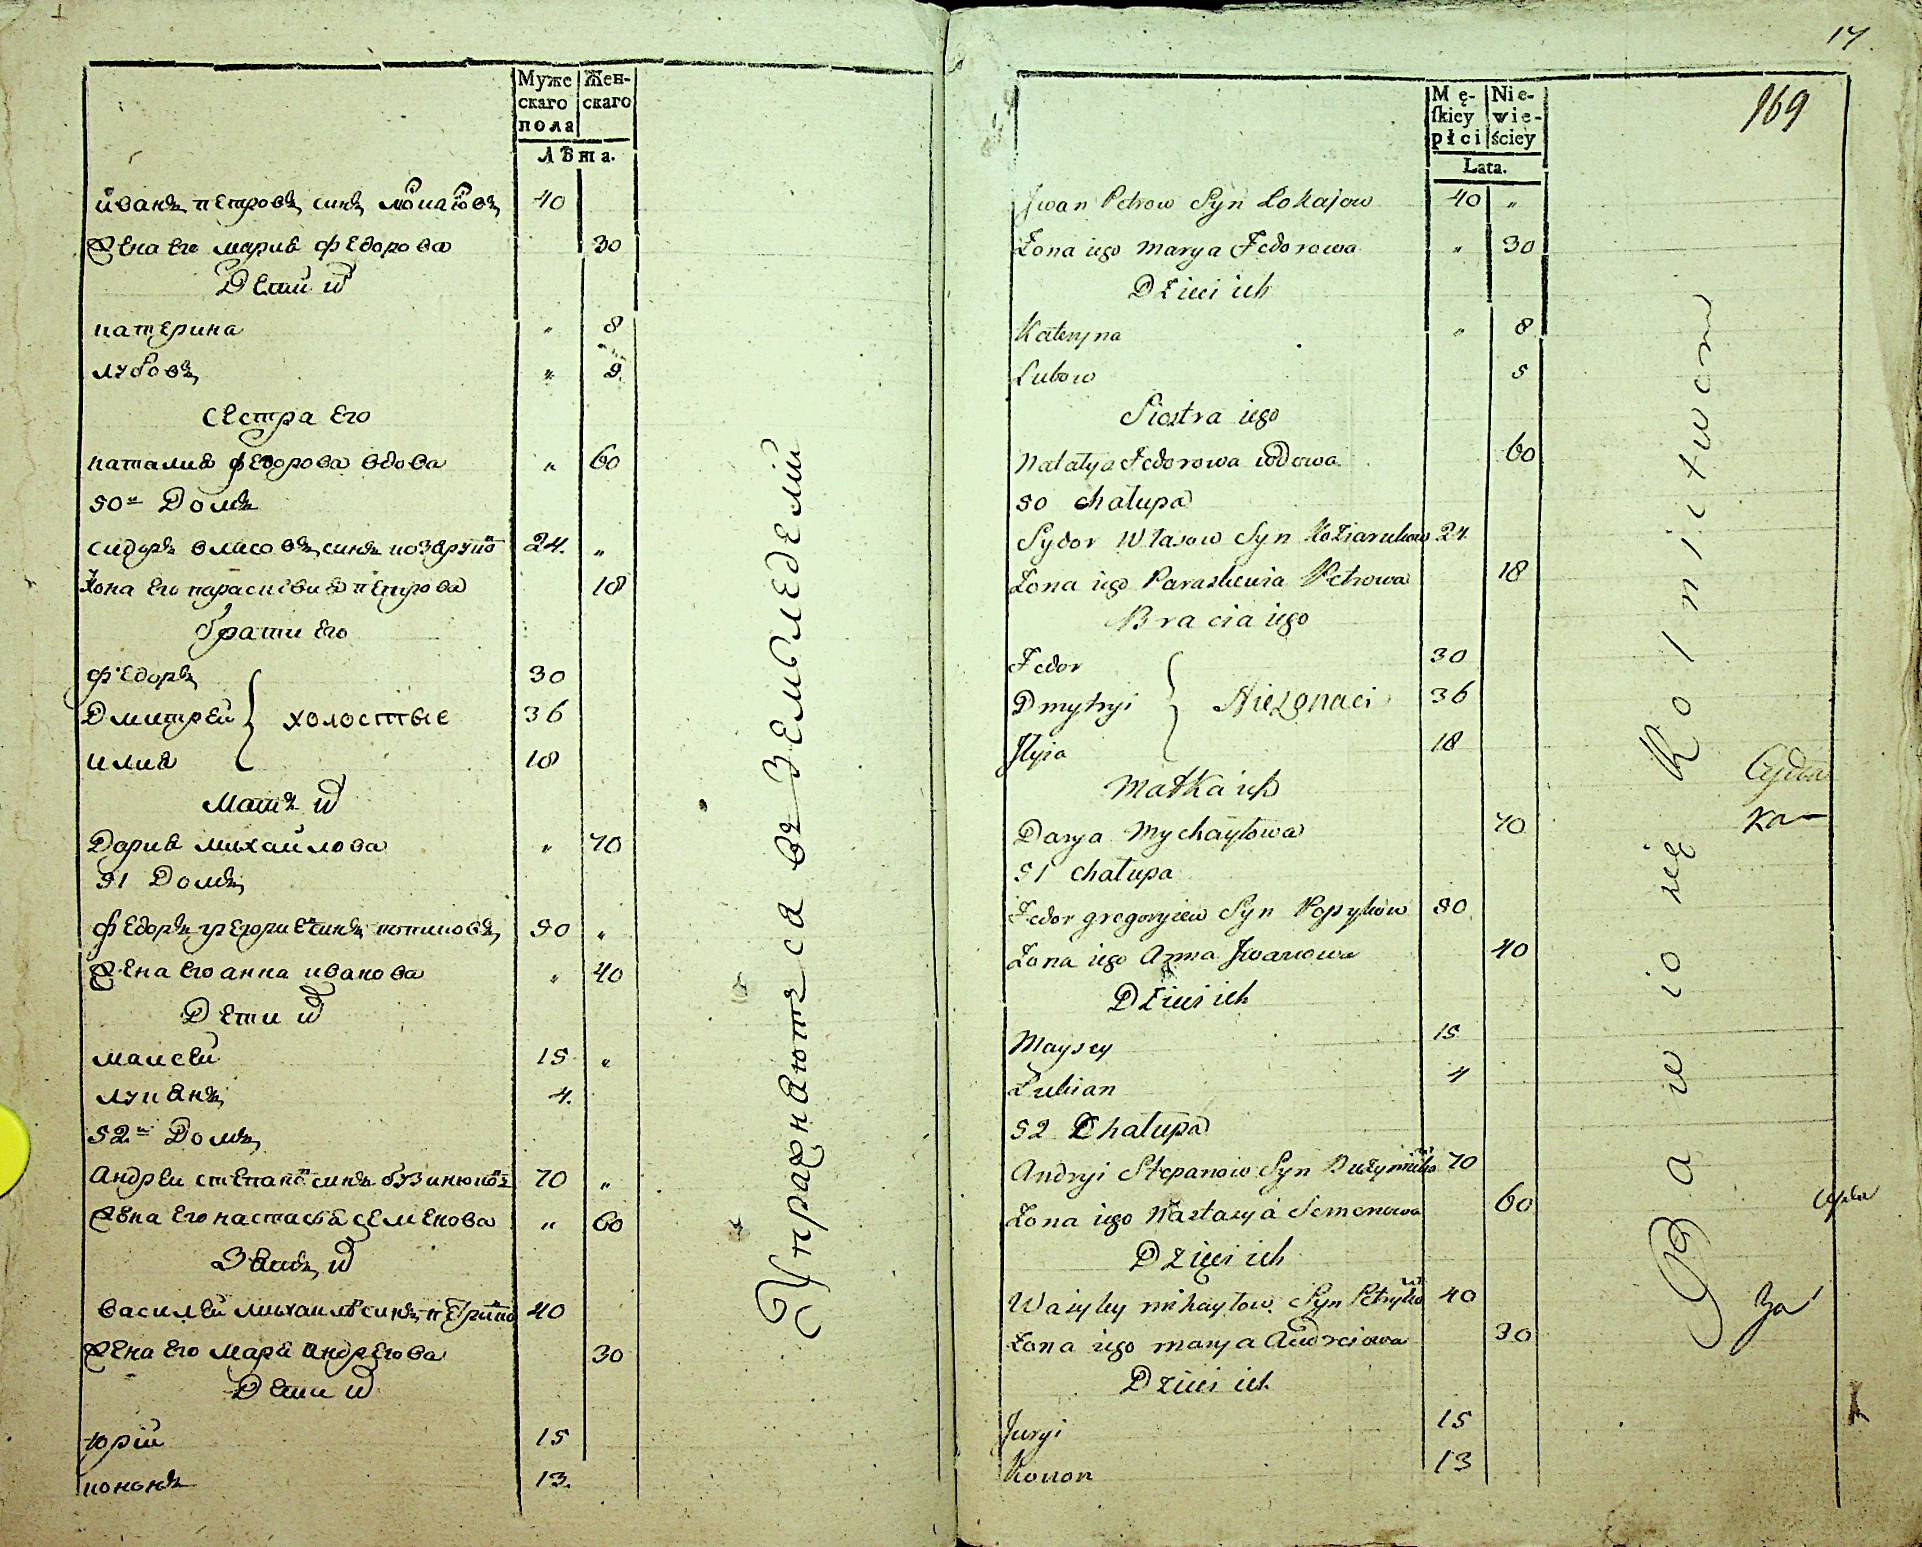 Муже скаго пола Жен- скаго
Лѣта.
иванъ петровъ синъ локаювъ 40
Жена его мария федорова 30
Дети их
катерина " 8
лубовъ " 5
сестра его
наталия федорова вдова " 60
50й Домъ
сидоръ власовъ синъ 24. "
Жона его параскевия петрова 18
брати его
федоръ 30
Дмитрей холостые 36
илия 18
Мать их
Дария михайлова " 70
51 Домъ
федоръ григориевъ синъ 50 "
Жена его анна иванова " 40
Дети их
майсей 15 "
лукиянъ 4.
52й Домъ
андрей степановъ синъ 70 "
Жена его настасия семенова " 60
Зять их
василей михайловъ синъ 40
Жена его мария андреюва 30
Дети их
юрій 15
кононъ 13.
Упражняются въ Земледелій
17
169
Mę- skiey płci Nie- wie- ściey
Lata.
Jwan Petrow Syn Lokajow 40 "
Żona iego Marya Fedorowa " 30
Dzieci ich
Kateryna " 8
Lubow 5
Siostra iego
Natalya Fedorowa wdowa 60
50 chałupa
Sydor Własow Syn Koziarukow 24
Żona iego Paraskewia Petrowa 18
Bracia iego
Fedor 30
Dmytryi Nieżonaci 36
Jlyia 18
Matka ich
Darya Mychayłowa 70
51 chałupa
Fedor gregoryiew Syn Popykow 50
Żona iego Anna Jwanowa 40
Dzieci ich
Maysey 15
Łukian 4
52 Chałupa
Andryi Stepanow Syn 70
Żona iego Nastasya Semenowa 60
Dzieci ich
Wasyley mihayłow Syn 40
Żona iego marya Andreiowa 30
Dzieci ich
Juryi 15
Konon 13
Bawio się Rolnictwem
за